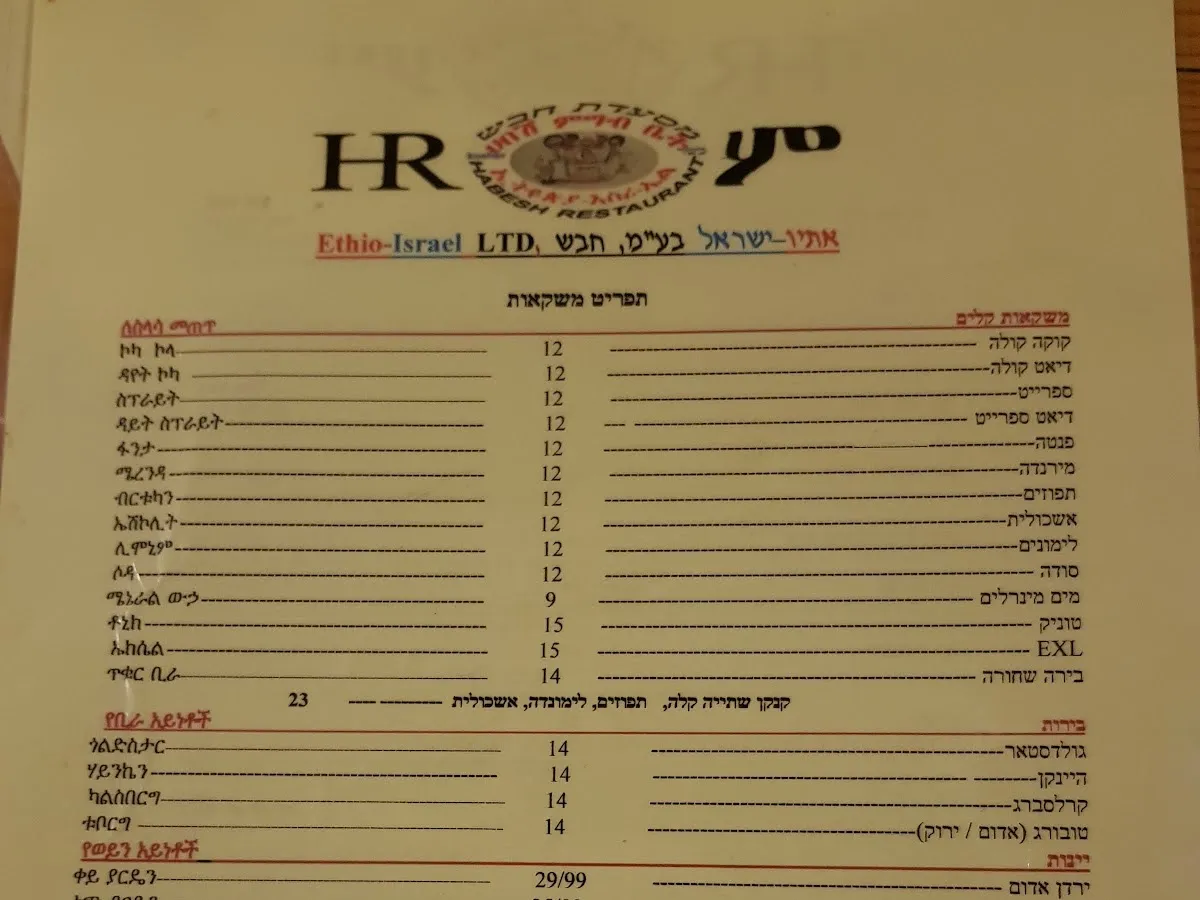 HR מסעדת חבש ሀበሻ ምግብ ቤት ኢትዮጵያ-እስራኤል HABESH RESTAURANT ም
Ethio-Israel LTD, אתיו-ישראל בע"מ, חבש
תפריט משקאות
ለስላሳ ማጠጥ משקאות קלים
ኮካ ኮላ 12 קוקה קולה
ዳየት ኮካ 12 דיאט קולה
ስፕራይት 12 ספרייט
ዳይት ስፕራይት 12 דיאט ספרייט
ፋንታ 12 פנטה
ሜረንዳ 12 מירנדה
ብርቱካን 12 תפוזים
ኤሽኮሊት 12 אשכולית
ሊሞኒም 12 לימונים
ሶዳ 12 סודה
ሜኔራል ውኃ 9 מים מינרלים
ቶኒክ 15 טוניק
ኤክሴል 15 EXL
ጥቁር ቢራ 14 בירה שחורה
קנקן שתייה קלה, תפוזים, לימונדה, אשכולית 23
የቢራ አይነቶች בירות
ጎልድስታር 14 גולדסטאר
ሃይንኬን 14 היינקן
ካልስበርግ 14 קרלסברג
ቱቦርግ 14 טובורג (אדום / ירוק)
የወይን አይነቶች יינות
ቀይ ያርዴን 29/99 ירדן אדום